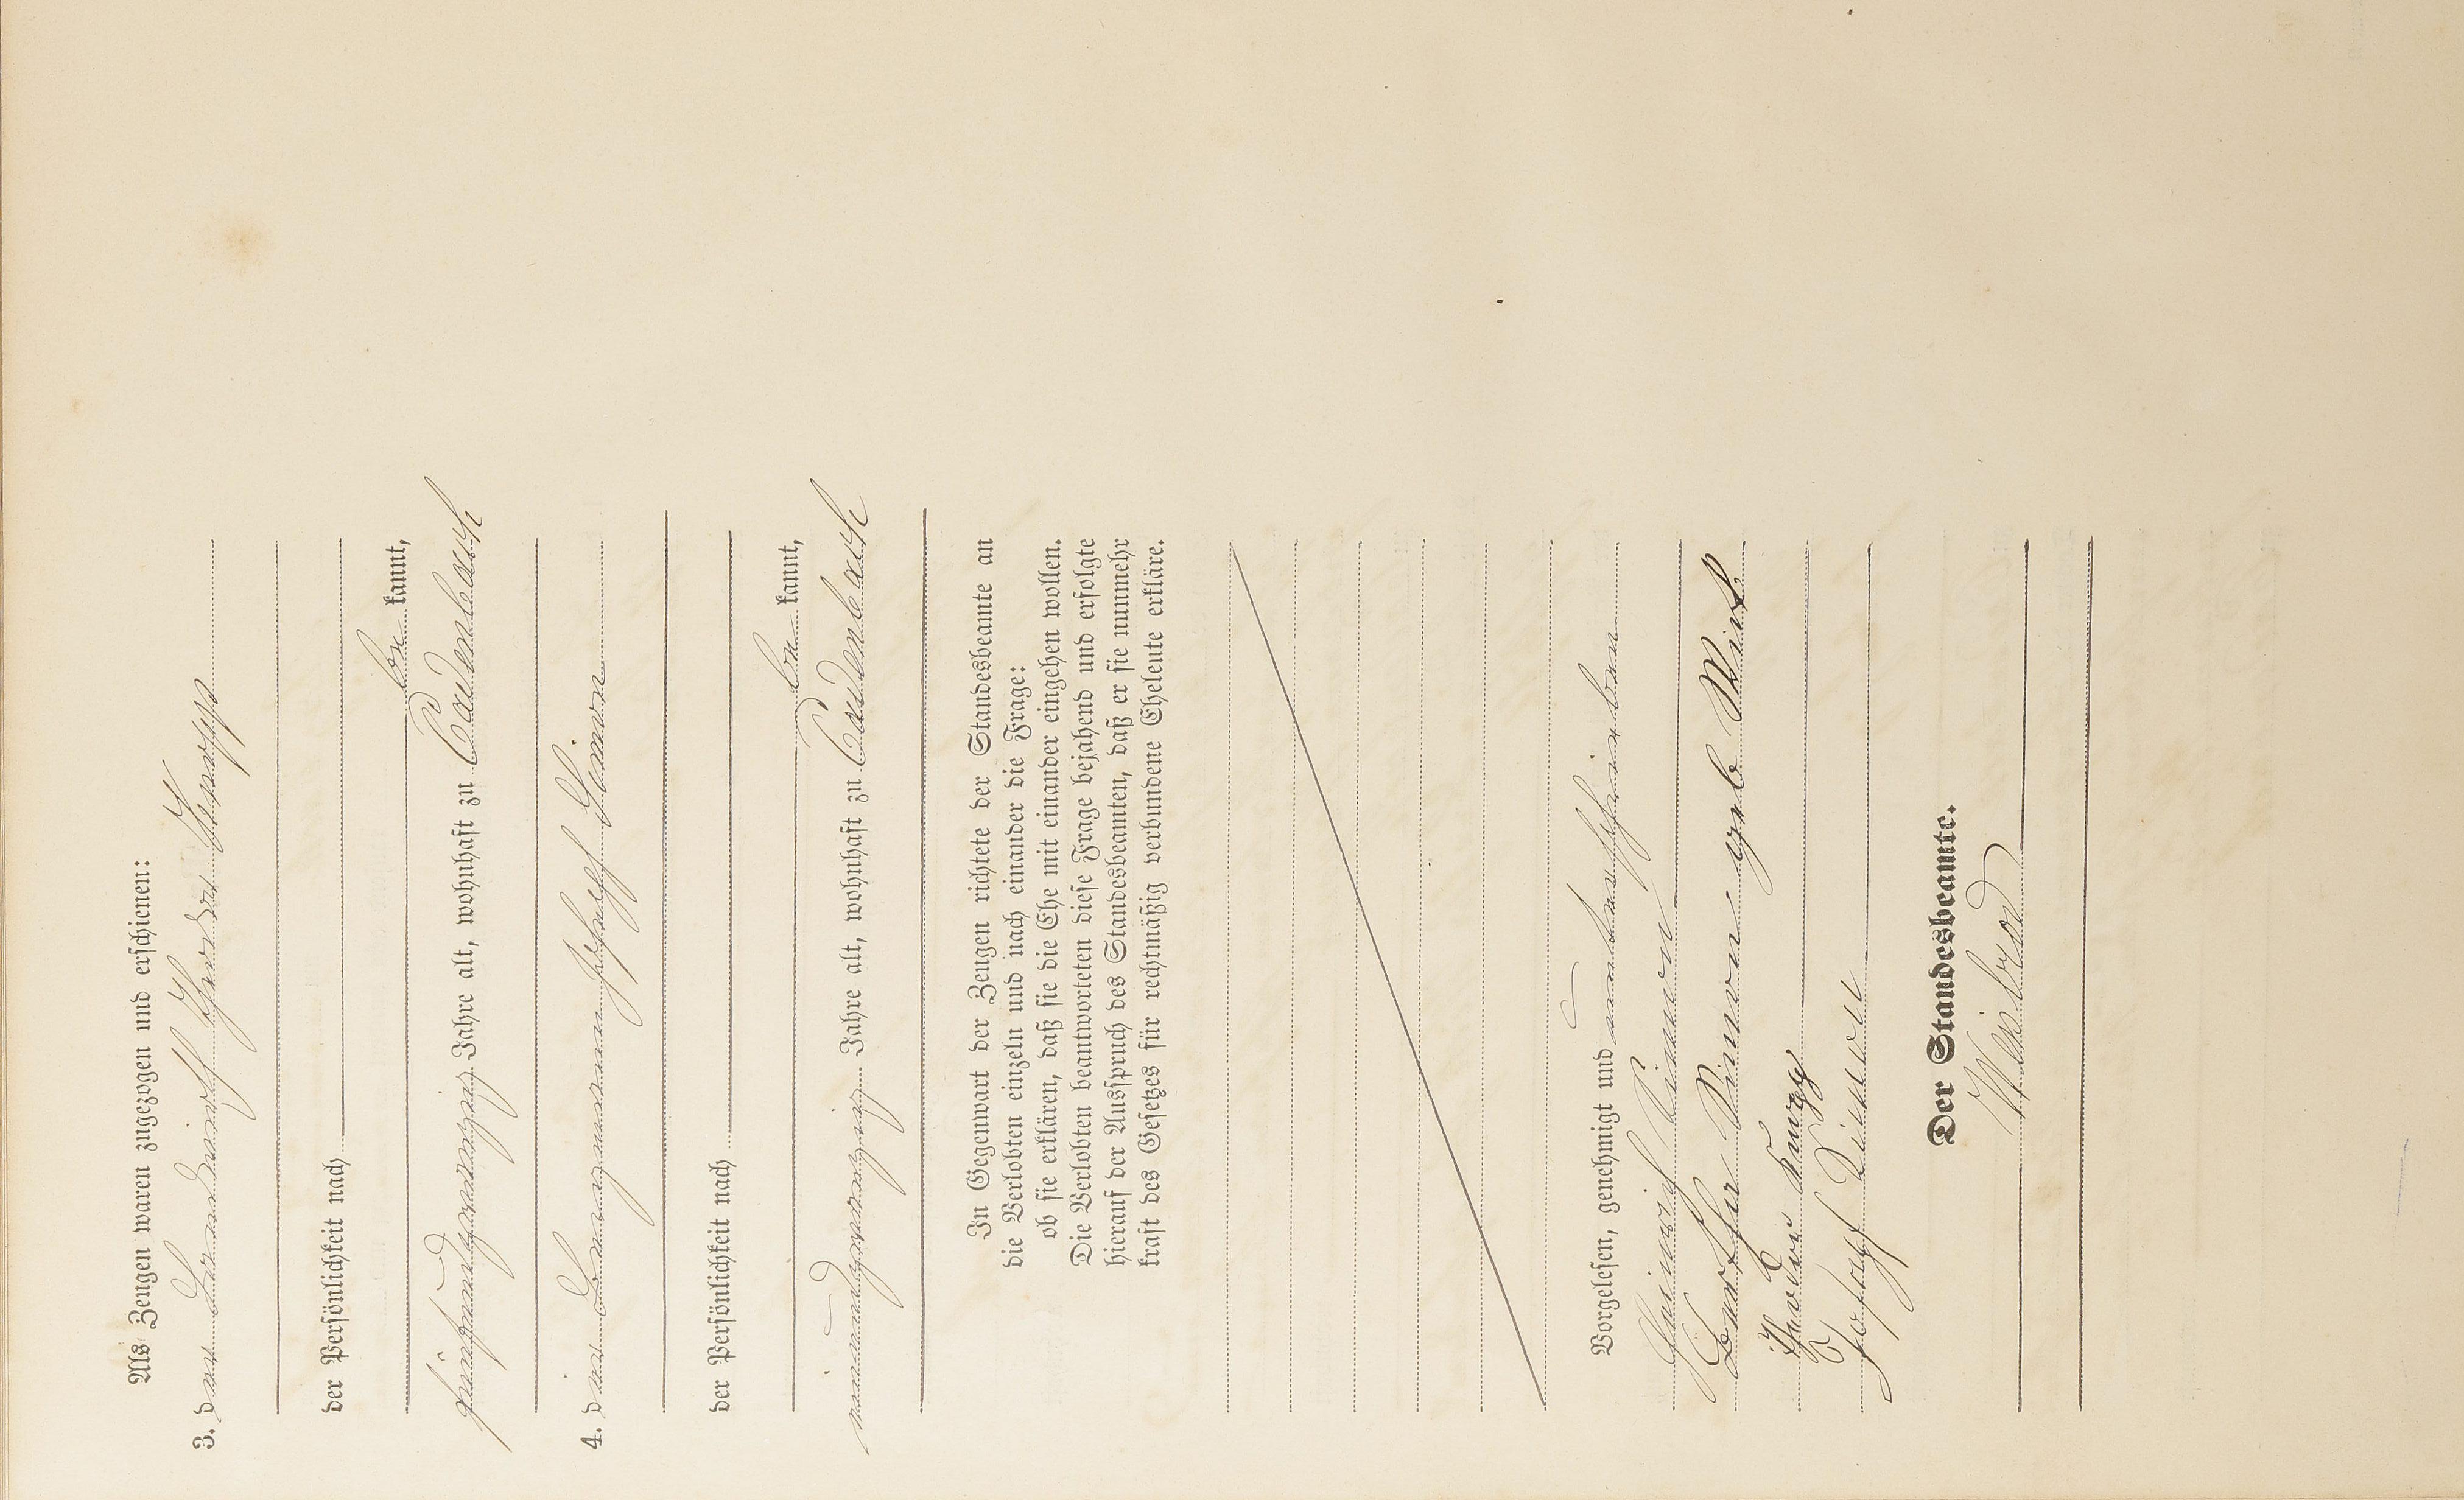 Als Zeugen waren zugezogen und erschienen:
3. der Landwirth
der Persönlichkeit nach
be kannt,
fünfundzwanzig Jahre alt, wohnhaft zu Cadenbach
4. der Bergmann Joseph Simon
der Persönlichkeit nach
be kannt,
einundzwanzig Jahre alt, wohnhaft zu Cadenbach
In Gegenwart der Zeugen richtete der Standesbeamte an
die Verlobten einzeln und nach einander die Frage:
ob sie erklären, daß sie die Ehe mit einander eingehen wollen.
Die Verlobten beantworteten diese Frage bejahend und erfolgte
hierauf der Ausspruch des Standesbeamten, daß er sie nunmehr
kraft des Gesetzes für rechtmäßig verbundene Eheleute erkläre.
Vorgelesen, genehmigt und unterschrieben
Heinrich Simon
Simon geb
Josef Simon
Der Standesbeamte.